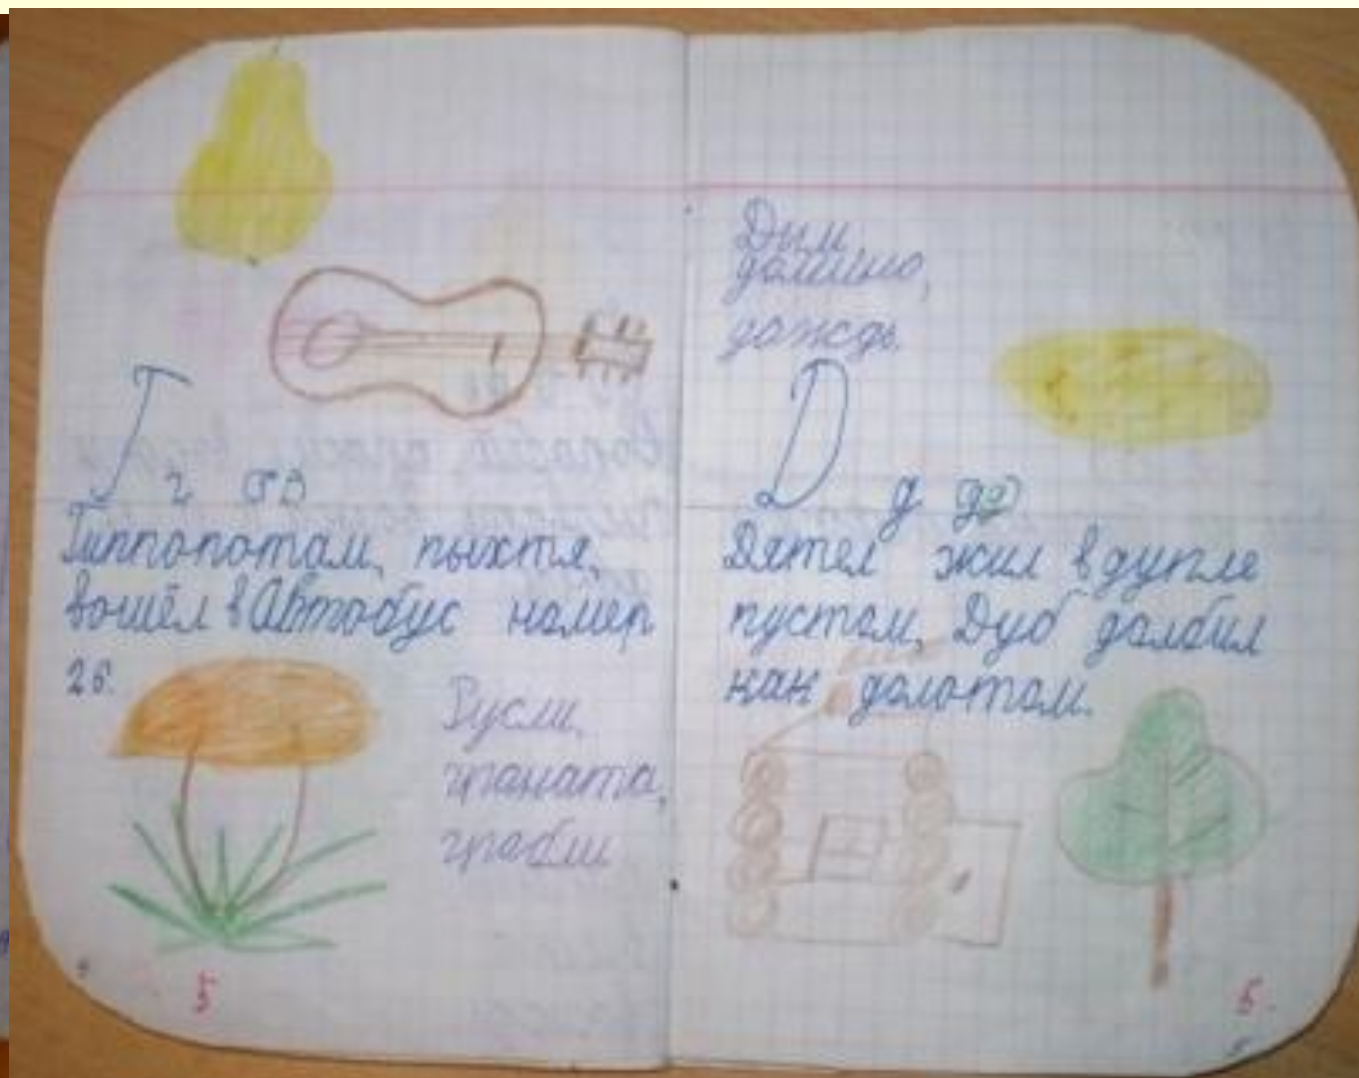 Г
г
Гиппопотам, пыхтя,
вошёл в Автобус номер
26.
Гусли,
граната,
грабли
5
Дым,
домино,
дождь.
D
g
Дятел жил в дупле
пустом, Дуб долбил
как долотом.
5.